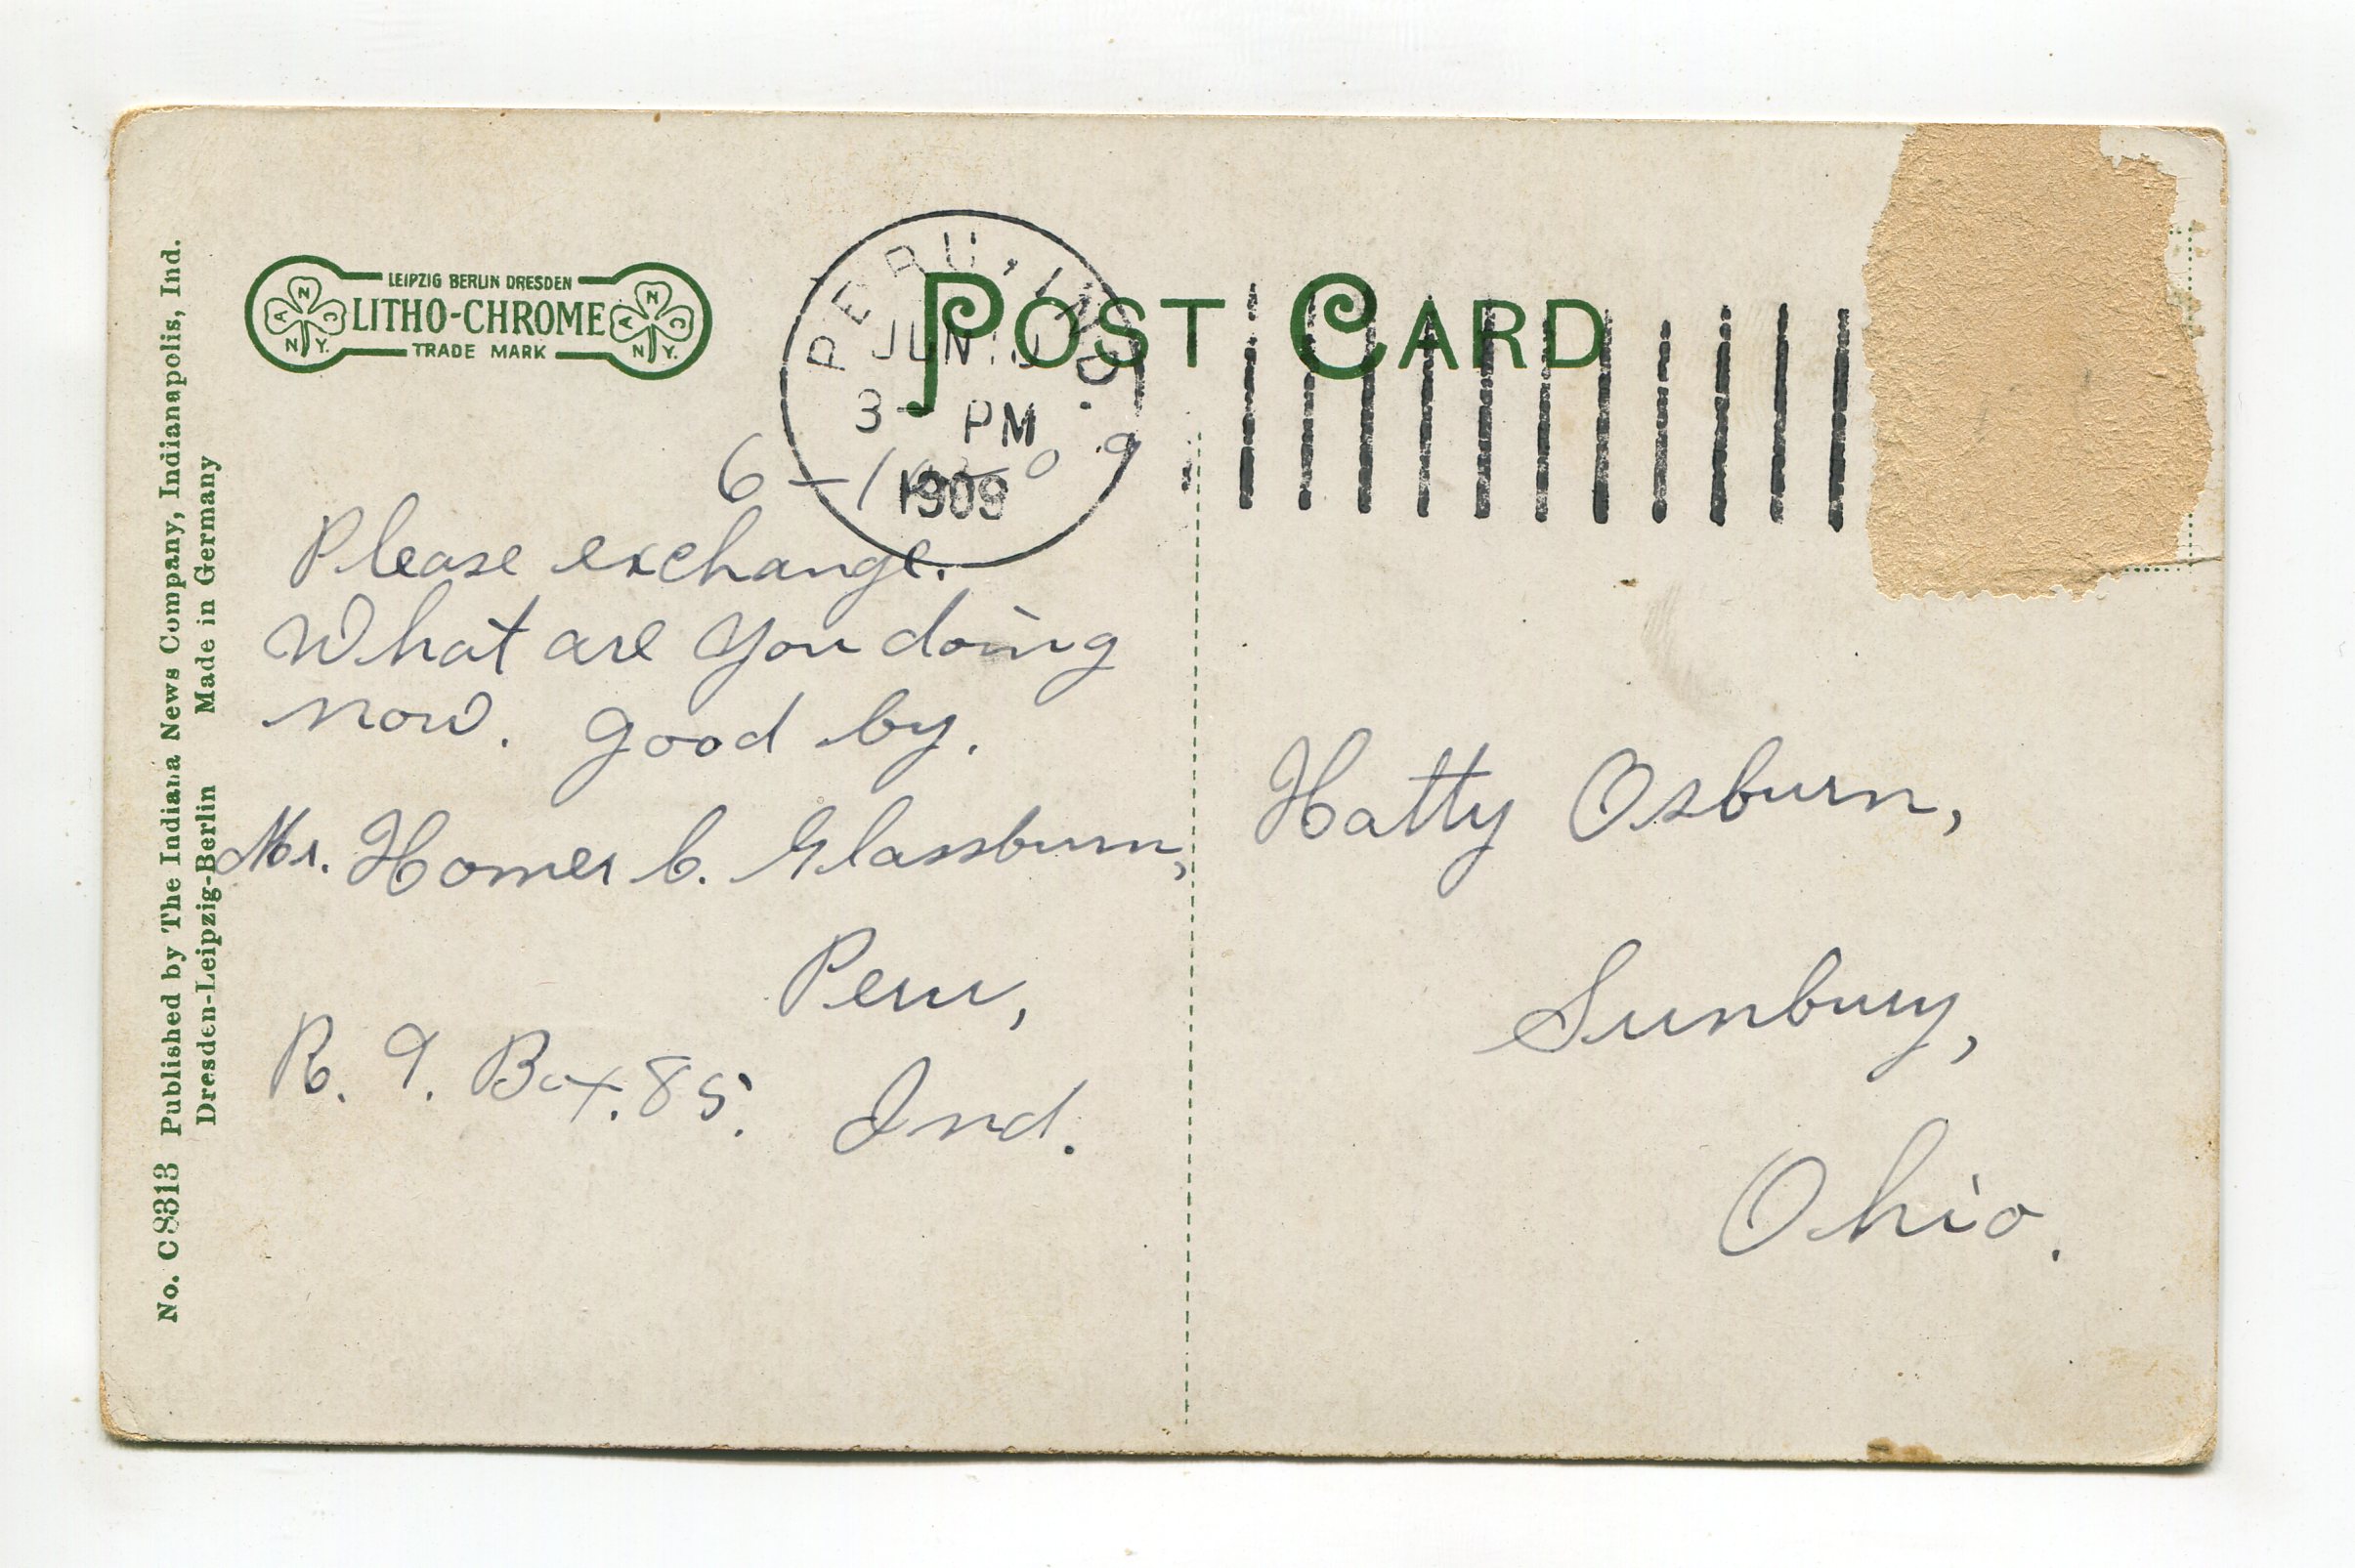 No. C8313 Published by The Indiana News Company, Indianapolis, Ind.
Dresden-Leipzig-Berlin Made in Germany
LEIPZIG BERLIN DRESDEN
LITHO-CHROME
TRADE MARK
A N C
N Y.
A N C
N Y.
POST CARD
PERU, IND.
JUN
3- PM
1909
Please exchange.
What are you doing
now. Good by.
Mr. Homer C. Glassburn,
Peru,
R. 9. Box. 85. Ind.
Hatty Osburn,
Sunbury,
Ohio.